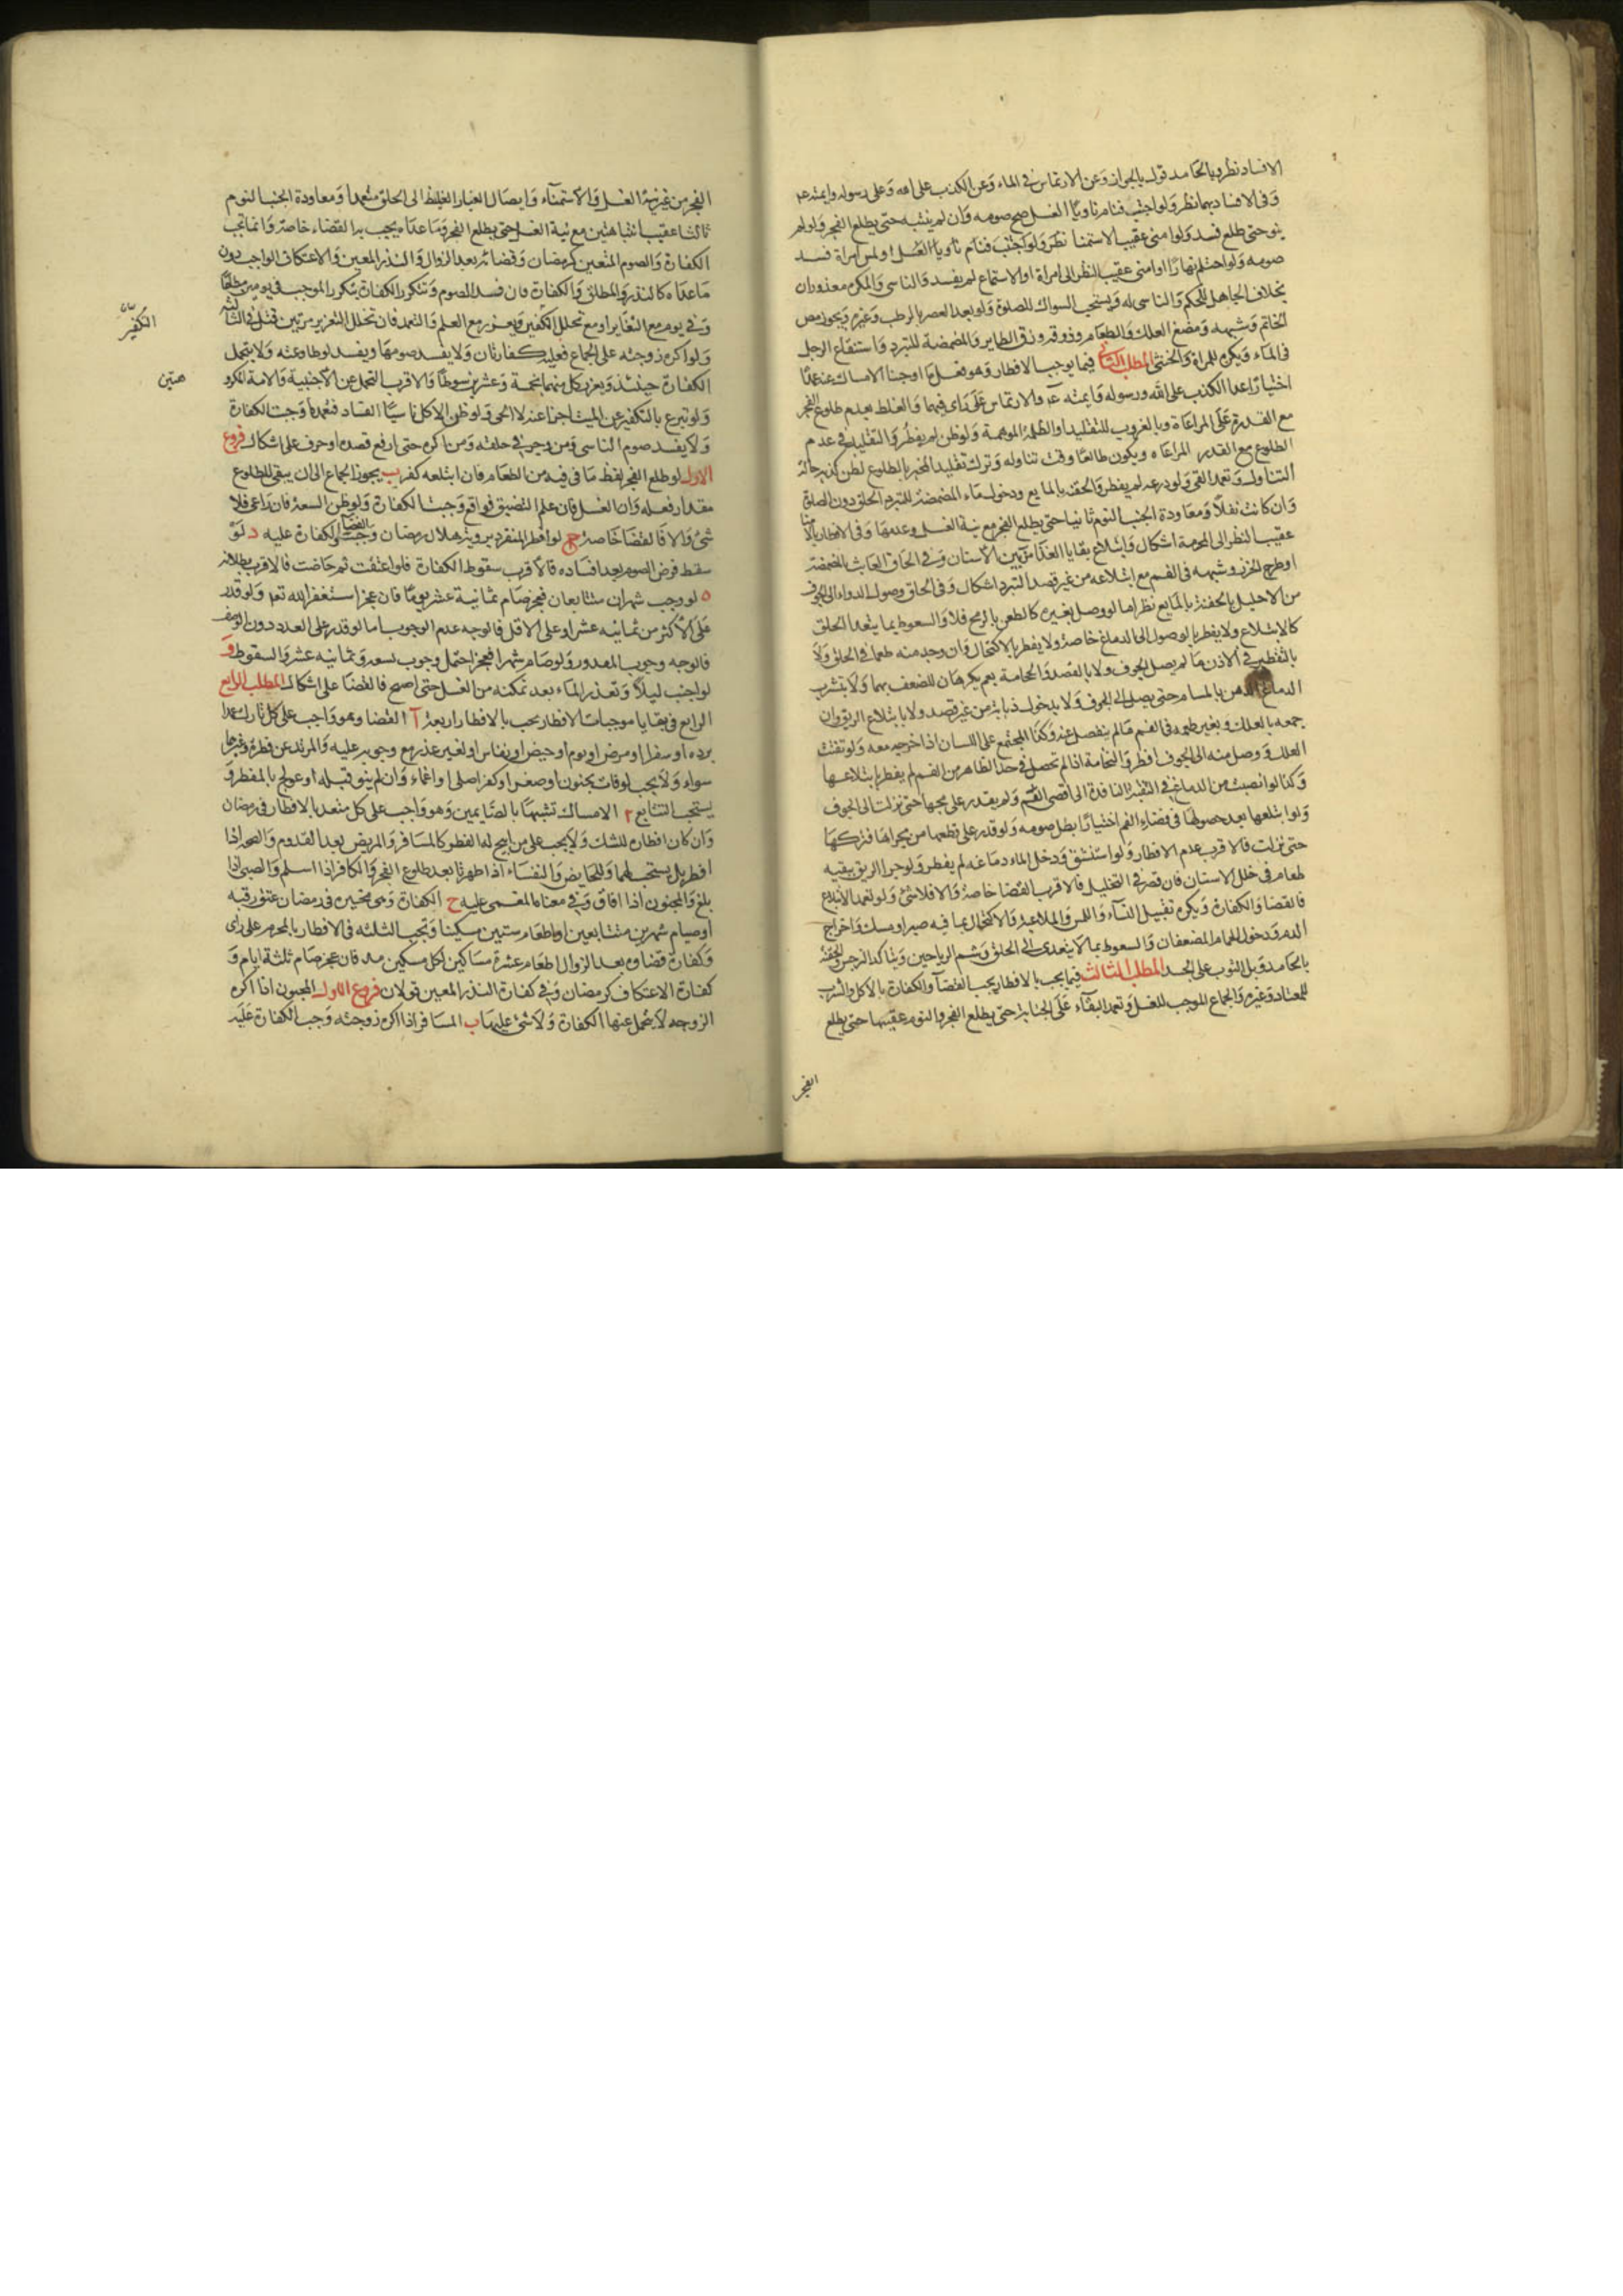 الافساد نظر وبالجامد قولـ بالجواز وعن الارتماس في الماء وعن الكذب على الله وعلى رسوله وايمته ع
وفى الافساد بهما نظر ولو اجنب فنام ناويًا الغسل صح صومه وان لم ينتبه حتى يطلع الفجر ولو لم
ينو حتى طلع فسد ولو امنى عقيب الاستمنا نظر ولو اجنب فنام ناويا الغسل او لمس امراة فسد
صومه ولو احتلم نهارًا او امنى عقيب النظر الى امراة او الاستماع لم يفسد والناسى والمكره معذوران
بخلاف الجاهل للحكم والناسى له ويستحب السواك للصلوة ولو بعد العصر بالرطب وغيره ويجوز مص
الخاتم وشبهه ومضغ العلك والطعام وذوقه وزق الطاير والمضمضة للتبرد واستنقاع الرجل
فى الماء ويكره للمراة والخنثى المطلب الثانى فيما يوجب الافطار وهو فعل ما اوجبنا الامساك عنه عمدًا
اختيارًا عدا الكذب على الله ورسوله وايمته ع والارتماس على راى فيهما والغلط بعدم طلوع الفجر
مع القدرة على المراعاة وبالغروب للتقليد او الظلمة الموهمة ولو ظن لم يفطر والتقليد في عدم
الطلوع مع القدرة المراعاه ويكون طالعًا وقت تناوله وترك تقليد المخبر بالطلوع لظن كذبه حالة
التناولـ وتعمد القى ولو ذرعه لم يفطر والحقنة بالمايع ودخولـ ماء المضمضة للتبرد الحلق دون الصلوة
وان كانت نفلاً ومعاودة الجنب النوم ثانيا حتى يطلع الفجر مع نية الغسل وعدمها وفى الافطار بالامنا
عقيب النظر الى المحرمة اشكال وابتلاع بقايا الغذا من بين الاسنان وفى الحاق العابث بالمضمضة
او طرح الخرز وشبهه فى الفم مع ابتلاعه من غير قصد المتبرد اشكال وفى الحاق وصول الدواء الى الجوف
من الاحليل بالحقنة بالمايع نظر اما لو وصل بغيره كالطعن بالرمح فلا والسعوط بما يتعدا الحلق
كالابتلاع ولا يفطر بالوصول الى الدماغ خاصة ولا يفطر بالاكتحال وان وجد منه طعما في الحلق ولا
بالتقطير في الاذن ما لم يصل الجوف ولا بالفصد والحجامة نعم يكرهان للضعف بهما ولا بتشرب
الدماغ الدهن بالمسام حتى يصل الى الجوف ولا بدخول ذبابة من غير قصد ولا بابتلاع الريق وان
جمعه بالعلك وبغير طعمه فى الفم ما لم ينفصل عنه وكذا المجتمع على اللسان اذا خرج معه ولو تفتت
العلك ووصل منه الى الجوف افطر والنخامة اذا لم تحصل في حد الظاهر من الفم لم يفطر بابتلاعها
وكذا لو انصبت من الدماغ في الثقبة النافذة الى اقصى الفم ولم يقدر على مجها حتى نزلت الى الجوف
ولو ابتلعها بعد حصولها فى فضاء الفم اختيارًا بطل صومه ولو قدر على قطعها من مجراها فتركها
حتى نزلت فالاقرب عدم الافطار ولو استنشق ودخل الماء دماغه لم يفطر ولو جرا الريق ببقيه
طعام فى خلل الاسنان فان قصر في التخليل فالاقرب القضا خاصة والا فلا شئ ولو تعمد الابتلاع
فالقضا والكفارة ويكره تقبيل النساء واللمس والملاعبة والاكتحال بما فيه صبر او مسك واخراج
الدم ودخول الحمام المضعفان والسعوط بما لا يتعدى الى الحلق وشم الرياحين ويتاكد النرجس والحقنة
بالجامد وبل الثوب على الجسد المطلب الثالث فيما يجب بالافطار يجب القضآ والكفارة بالاكل والشرب
للمعتاد وغيره والجماع الموجب للغسل وتعمد البقآء على الجنابة حتى يطلع الفجر والنوم عقيبها حتى يطلع
الفجر
الفجر من غير نية الغسل والاستمناء وايصال الغبار الغليظ الى الحلق متعمدا ومعاودة الجنب النوم
ثالثا عقيب انتباهتين مع نية الغسل حتى يطلع الفجر وما عداه يجب به القضاء خاصة وانما تجب
الكفارة والصوم المتعين كرمضان وقضائه بعد الزوال والنذر المعين والاعتكاف الواجب دون
ما عداه كالنذر المطلق والكفارة وان فسد الصوم وتتكرر الكفارة بتكرر الموجب فى يومين مطلقا
وفى يوم مع التغاير او مع تخلل التكفير ويعزر مع العلم والتعمد فان تخلل التعزير مرتين قتل فى الثالثة
ولو اكره زوجته على الجماع فعليه كفارتان ولا يفسد صومها ويفسد لو طاوعته ولا يتحمل
الكفارة حينئذ ويعزر كل منهما بخمسة وعشرين سوطًا والاقرب التحمل عن الاجنبية والامة المكرو
هتين
ولو تبرع بالتكفير عن الميت اجزا عنه لا الحى ولو ظن الاكل ناسيًا الفساد فتعمده وجبت الكفارة
ولا يفسد صوم الناسى ومن وجر فى حلقه ومن اكره حتى ارتفع قصده او خوف على اشكالـ فروع
الاول لو طلع الفجر لفظ ما فى فيه من الطعام فان ابتلعه كفر ب يجوز الجماع الى ان يبقى للطلوع
مقدار فعله وان الغسل فان علم التضيق فواقع وجبت الكفارة ولو ظن السعة فان راعى فلا
شئ والا فالقضا خاصة ج لو افطر المنفرد برؤية هلال رمضان وجب القضا والكفارة عليه د لو
سقط فرض الصوم بعد افساده فالاقرب سقوط الكفارة فلو اعتقت ثم حاضت فالاقرب بطلانه
ه لو وجب شهران متتابعان فعجز صام ثمانية عشر يومًا فان عجز استغفر الله تع ولو قدر
على الاكثر من ثمانيه عشر او على الاقل فالوجه عدم الوجوب اما لو قدر على العدد دون الوصف
فالوجه وجوب المقدور ولو صام شهرا فعجز احتمل وجوب تسعه وثمانيه عشر والسقوط و
لو اجنب ليلاً وتعذر الماء بعد تمكنه من الغسل حتى اصبح فالقضا على اشكالـ المطلب الرابع
الرابع فى بقايا موجبات الافطار يجب بالافطار اربعة آ القضا وهو واجب على كل تارك عمدا
برده او سفر او مرض او نوم او حيض او نفاس او لغير عذر مع وجوبه عليه والمرتد عن فطرة وغيرها
سواء ولا يجب لو فات بجنون او صغر او كفر اصلى او اغماء وان لم ينو قبله او عولج بالمفطر و
يستحب التتابع ٢ الامساك تشبهًا بالصايمين وهو واجب على كل متعمد بالافطار فى رمضان
وان كان افطاره للشك ولا يجب على من ابيح له الفطر كالمسافر والمريض بعد القدوم والصحه اذا
افطر بل يستحب لهما وللحايض والنفساء اذا طهرتا بعد طلوع الفجر والكافر اذا اسلم والصبى اذا
بلغ والمجنون اذا افاق وفى معناه المغمى عليه ح الكفارة وهى مخيره فى رمضان عتق رقبه
او صيام شهرين متتابعين او اطعام ستين مسكينا وتجب الثلثه فى الافطار بالمحرم على راى
وكفارة قضاوه بعد الزوال اطعام عشرة مساكين لكل مسكين مد فان عجز صام ثلثة ايام و
كفارة الاعتكاف كرمضان وفى كفارة النذر المعين قولان فروع الاول المجنون اذا اكره
الزوجه لا يتحمل عنها الكفارة ولا شئ عليها ب المسافر اذا اكره زوجته وجب الكفارة عليه